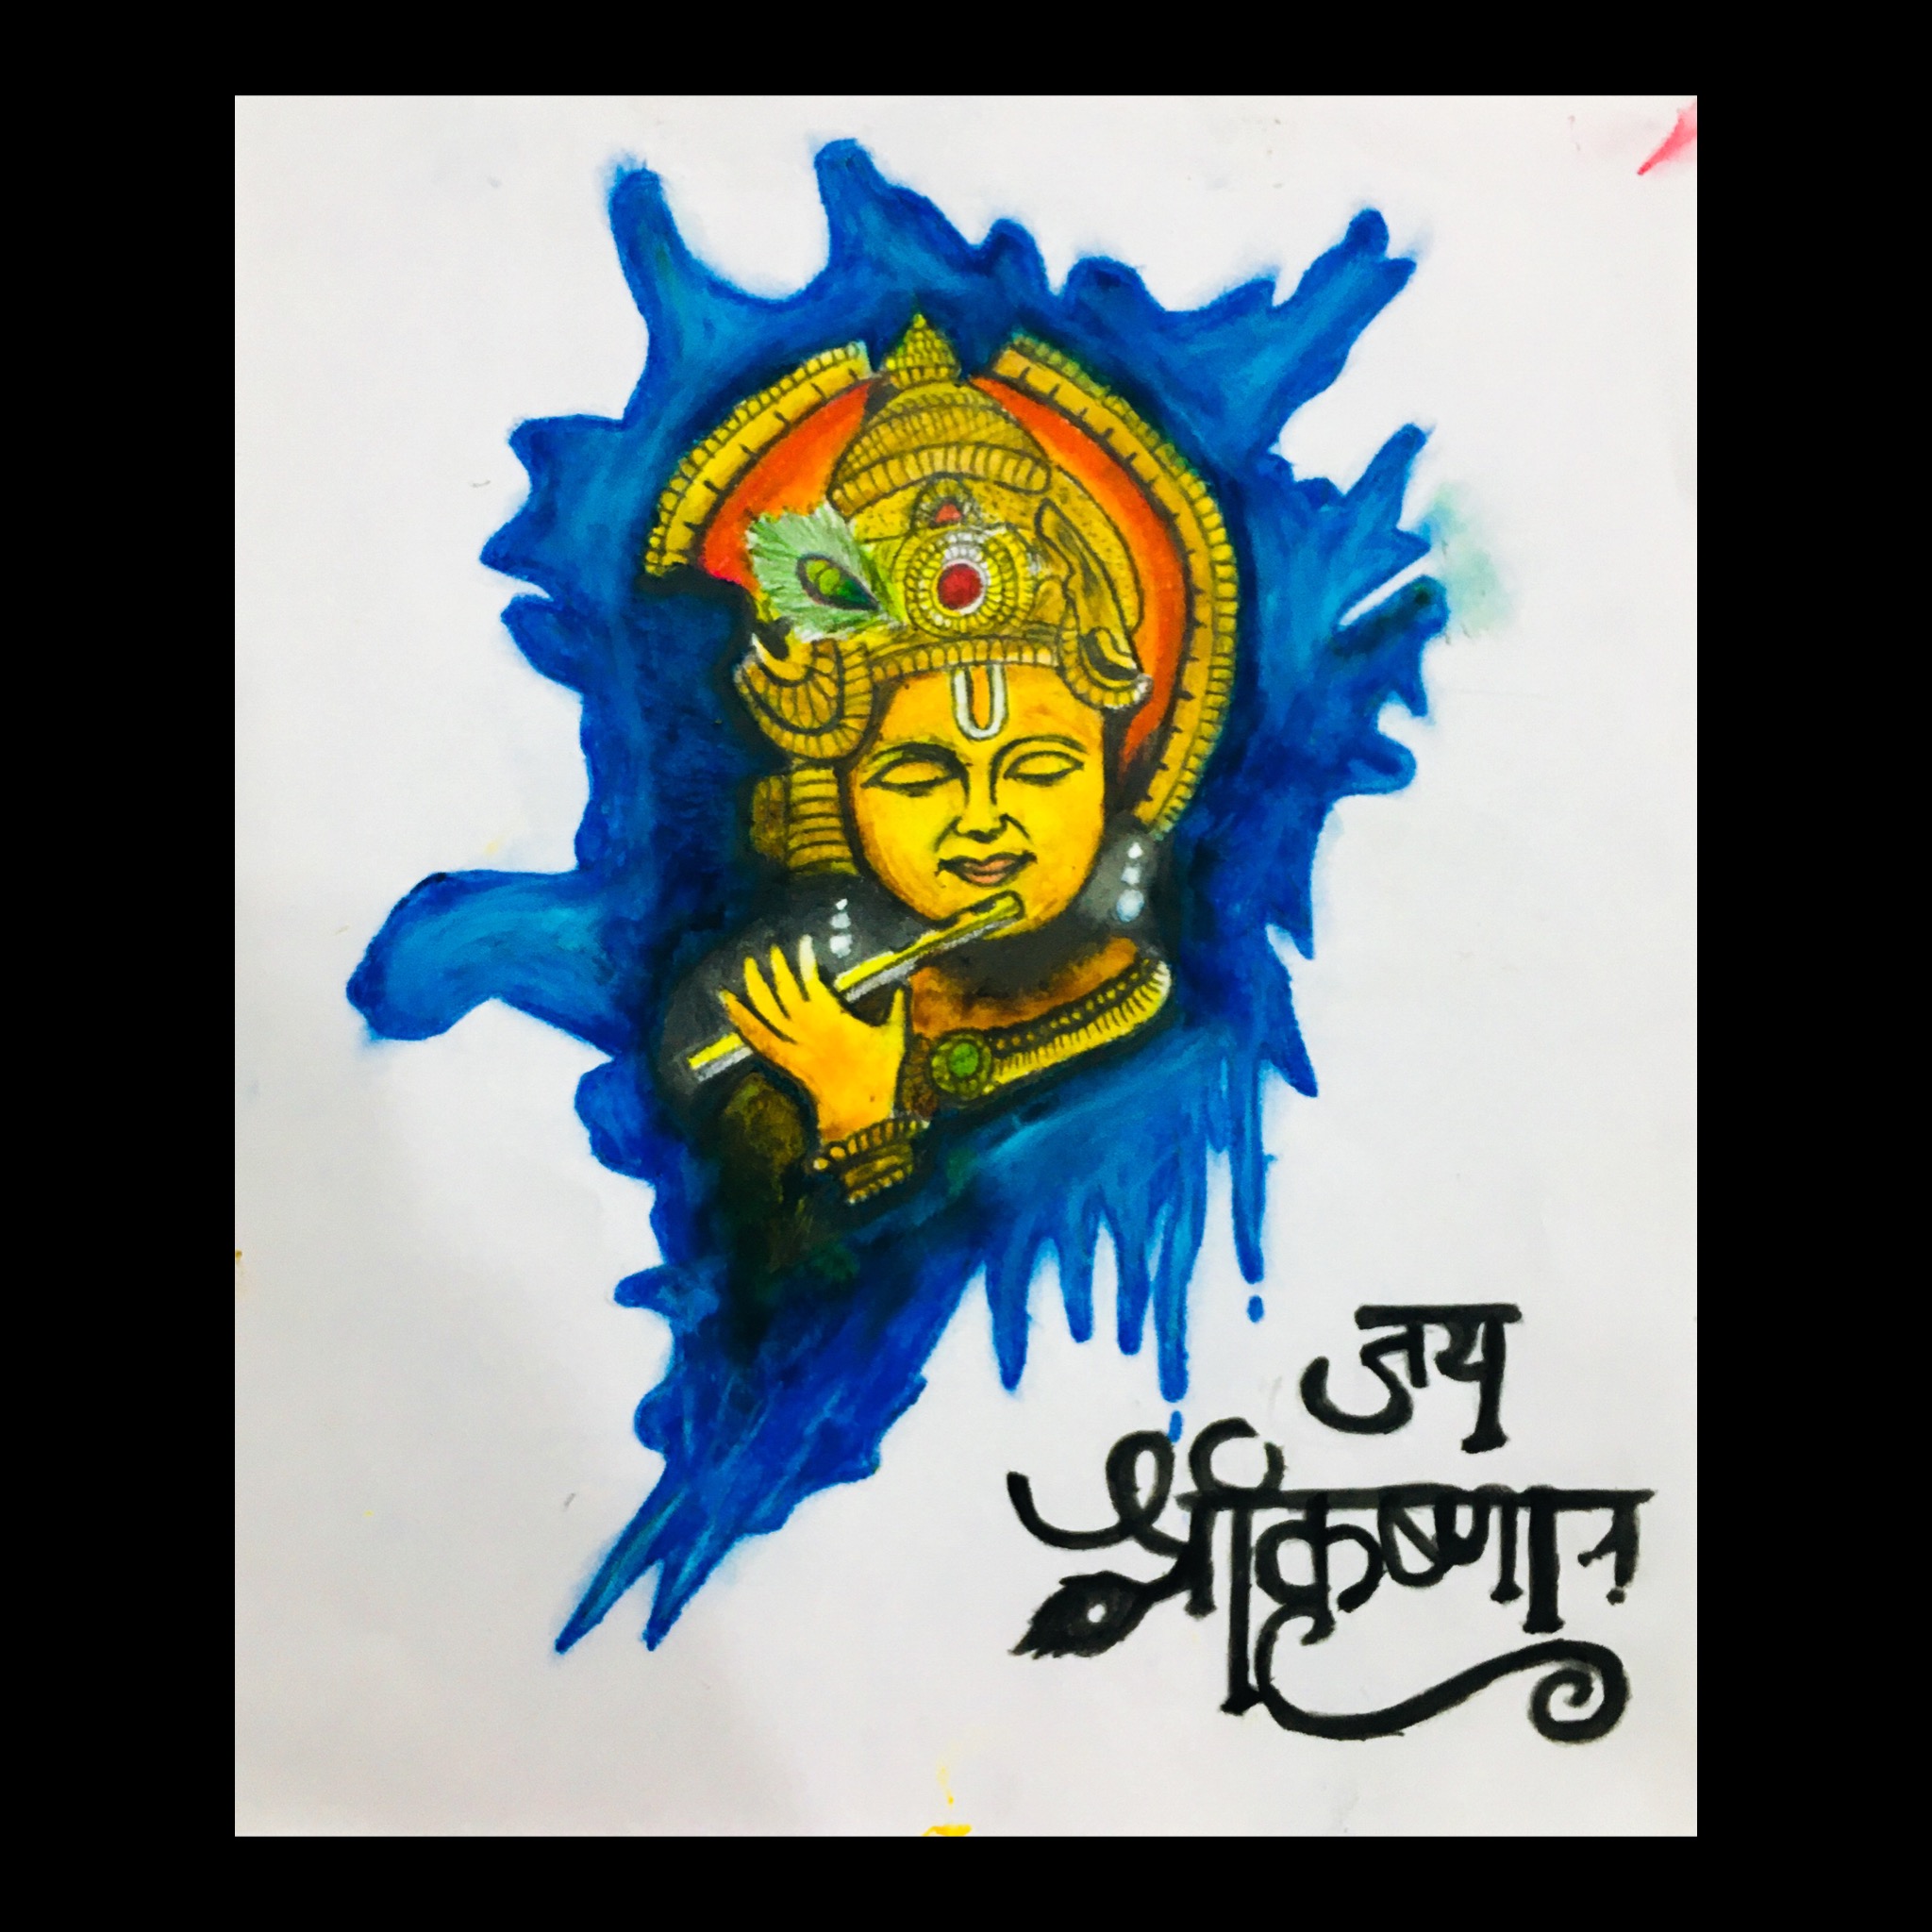 जय
श्रीकृष्णा